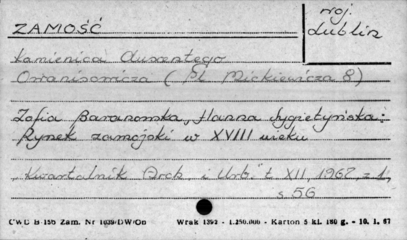 ZAMOŚĆ
woj. Lublin
Kamienica Auxentego
Owanisowicza ( Pl. Mickiewicza 8)
Zofia Baranowska, Hanna Sygietyńska:
Rynek zamojski w XVIII wieku
"Kwartalnik Arch. i Urb." t. XII, 1967, z. 1,
s. 56
CWD B 155 Zam. Nr W rak 1392 - 1.250.000 - Karton 5 kl. 180 g. - 10. 1. 67